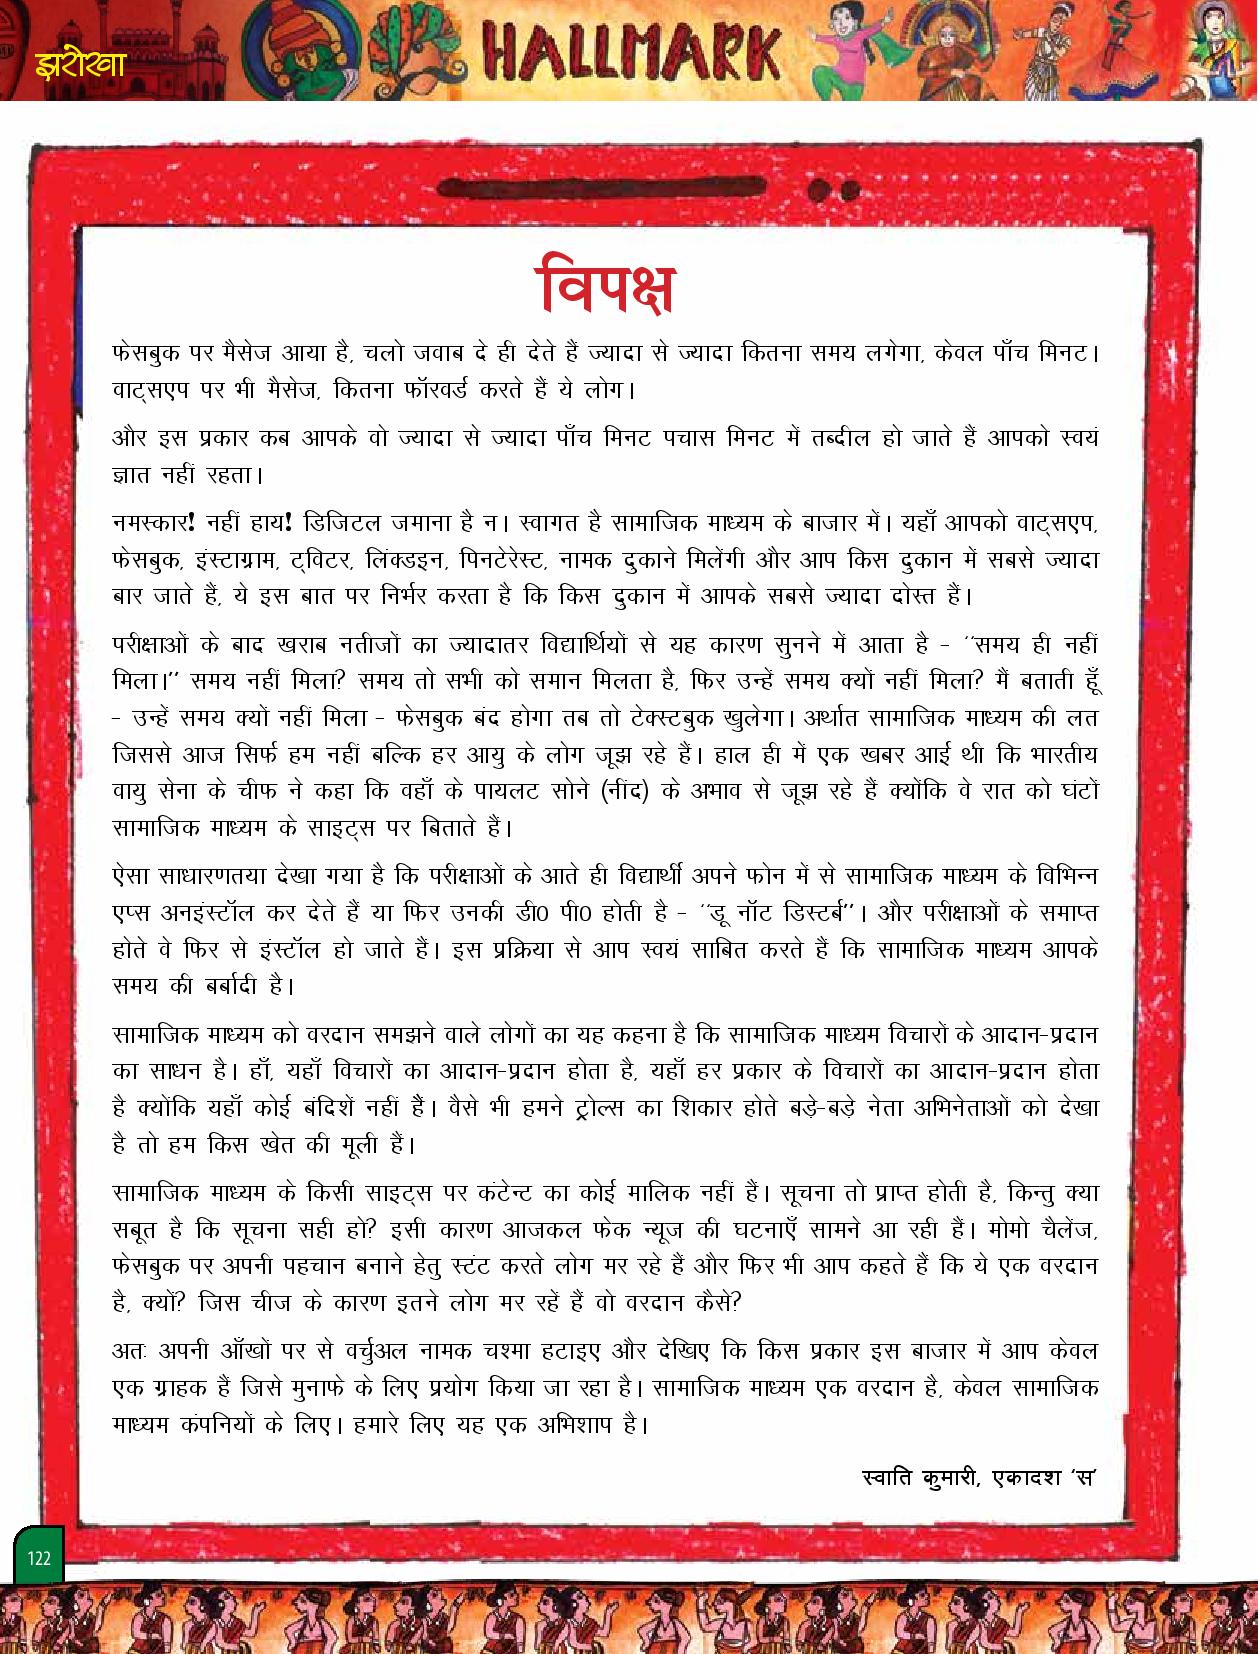 झरोखा
HALLMARK
विपक्ष
फेसबुक पर मैसेज आया है, चलो जवाब दे ही देते हैं ज्यादा से ज्यादा कितना समय लगेगा, केवल पाँच मिनट।
वाट्सएप पर भी मैसेज, कितना फॉरवर्ड करते हैं ये लोग।
और इस प्रकार कब आपके वो ज्यादा से ज्यादा पाँच मिनट पचास मिनट में तब्दील हो जाते हैं आपको स्वयं
ज्ञात नहीं रहता।
नमस्कार! नहीं हाय! डिजिटल जमाना है न। स्वागत है सामाजिक माध्यम के बाजार में। यहाँ आपको वाट्सएप,
फेसबुक, इंस्टाग्राम, ट्विटर, लिंक्डइन, पिनटेरेस्ट, नामक दुकाने मिलेंगी और आप किस दुकान में सबसे ज्यादा
बार जाते हैं, ये इस बात पर निर्भर करता है कि किस दुकान में आपके सबसे ज्यादा दोस्त हैं।
परीक्षाओं के बाद खराब नतीजों का ज्यादातर विद्यार्थियों से यह कारण सुनने में आता है - ''समय ही नहीं
मिला।'' समय नहीं मिला? समय तो सभी को समान मिलता है, फिर उन्हें समय क्यों नहीं मिला? मैं बताती हूँ
- उन्हें समय क्यों नहीं मिला - फेसबुक बंद होगा तब तो टेक्स्टबुक खुलेगा। अर्थात सामाजिक माध्यम की लत
जिससे आज सिर्फ हम नहीं बल्कि हर आयु के लोग जूझ रहे हैं। हाल ही में एक खबर आई थी कि भारतीय
वायु सेना के चीफ ने कहा कि वहाँ के पायलट सोने (नींद) के अभाव से जूझ रहे हैं क्योंकि वे रात को घंटों
सामाजिक माध्यम के साइट्स पर बिताते हैं।
ऐसा साधारणतया देखा गया है कि परीक्षाओं के आते ही विद्यार्थी अपने फोन में से सामाजिक माध्यम के विभिन्न
एप्स अनइंस्टॉल कर देते हैं या फिर उनकी डी0 पी0 होती है - ''डू नॉट डिस्टर्ब''। और परीक्षाओं के समाप्त
होते वे फिर से इंस्टॉल हो जाते हैं। इस प्रक्रिया से आप स्वयं साबित करते हैं कि सामाजिक माध्यम आपके
समय की बर्बादी है।
सामाजिक माध्यम को वरदान समझने वाले लोगों का यह कहना है कि सामाजिक माध्यम विचारों के आदान-प्रदान
का साधन है। हाँ, यहाँ विचारों का आदान-प्रदान होता है, यहाँ हर प्रकार के विचारों का आदान-प्रदान होता
है क्योंकि यहाँ कोई बंदिशें नहीं हैं। वैसे भी हमने ट्रोल्स का शिकार होते बड़े-बड़े नेता अभिनेताओं को देखा
है तो हम किस खेत की मूली हैं।
सामाजिक माध्यम के किसी साइट्स पर कंटेन्ट का कोई मालिक नहीं हैं। सूचना तो प्राप्त होती है, किन्तु क्या
सबूत है कि सूचना सही हो? इसी कारण आजकल फेक न्यूज की घटनाएँ सामने आ रही हैं। मोमो चैलेंज,
फेसबुक पर अपनी पहचान बनाने हेतु स्टंट करते लोग मर रहे हैं और फिर भी आप कहते हैं कि ये एक वरदान
है, क्यों? जिस चीज के कारण इतने लोग मर रहें हैं वो वरदान कैसे?
अतः अपनी आँखों पर से वर्चुअल नामक चश्मा हटाइए और देखिए कि किस प्रकार इस बाजार में आप केवल
एक ग्राहक हैं जिसे मुनाफे के लिए प्रयोग किया जा रहा है। सामाजिक माध्यम एक वरदान है, केवल सामाजिक
माध्यम कंपनियों के लिए। हमारे लिए यह एक अभिशाप है।
स्वाति कुमारी, एकादश 'स'
122